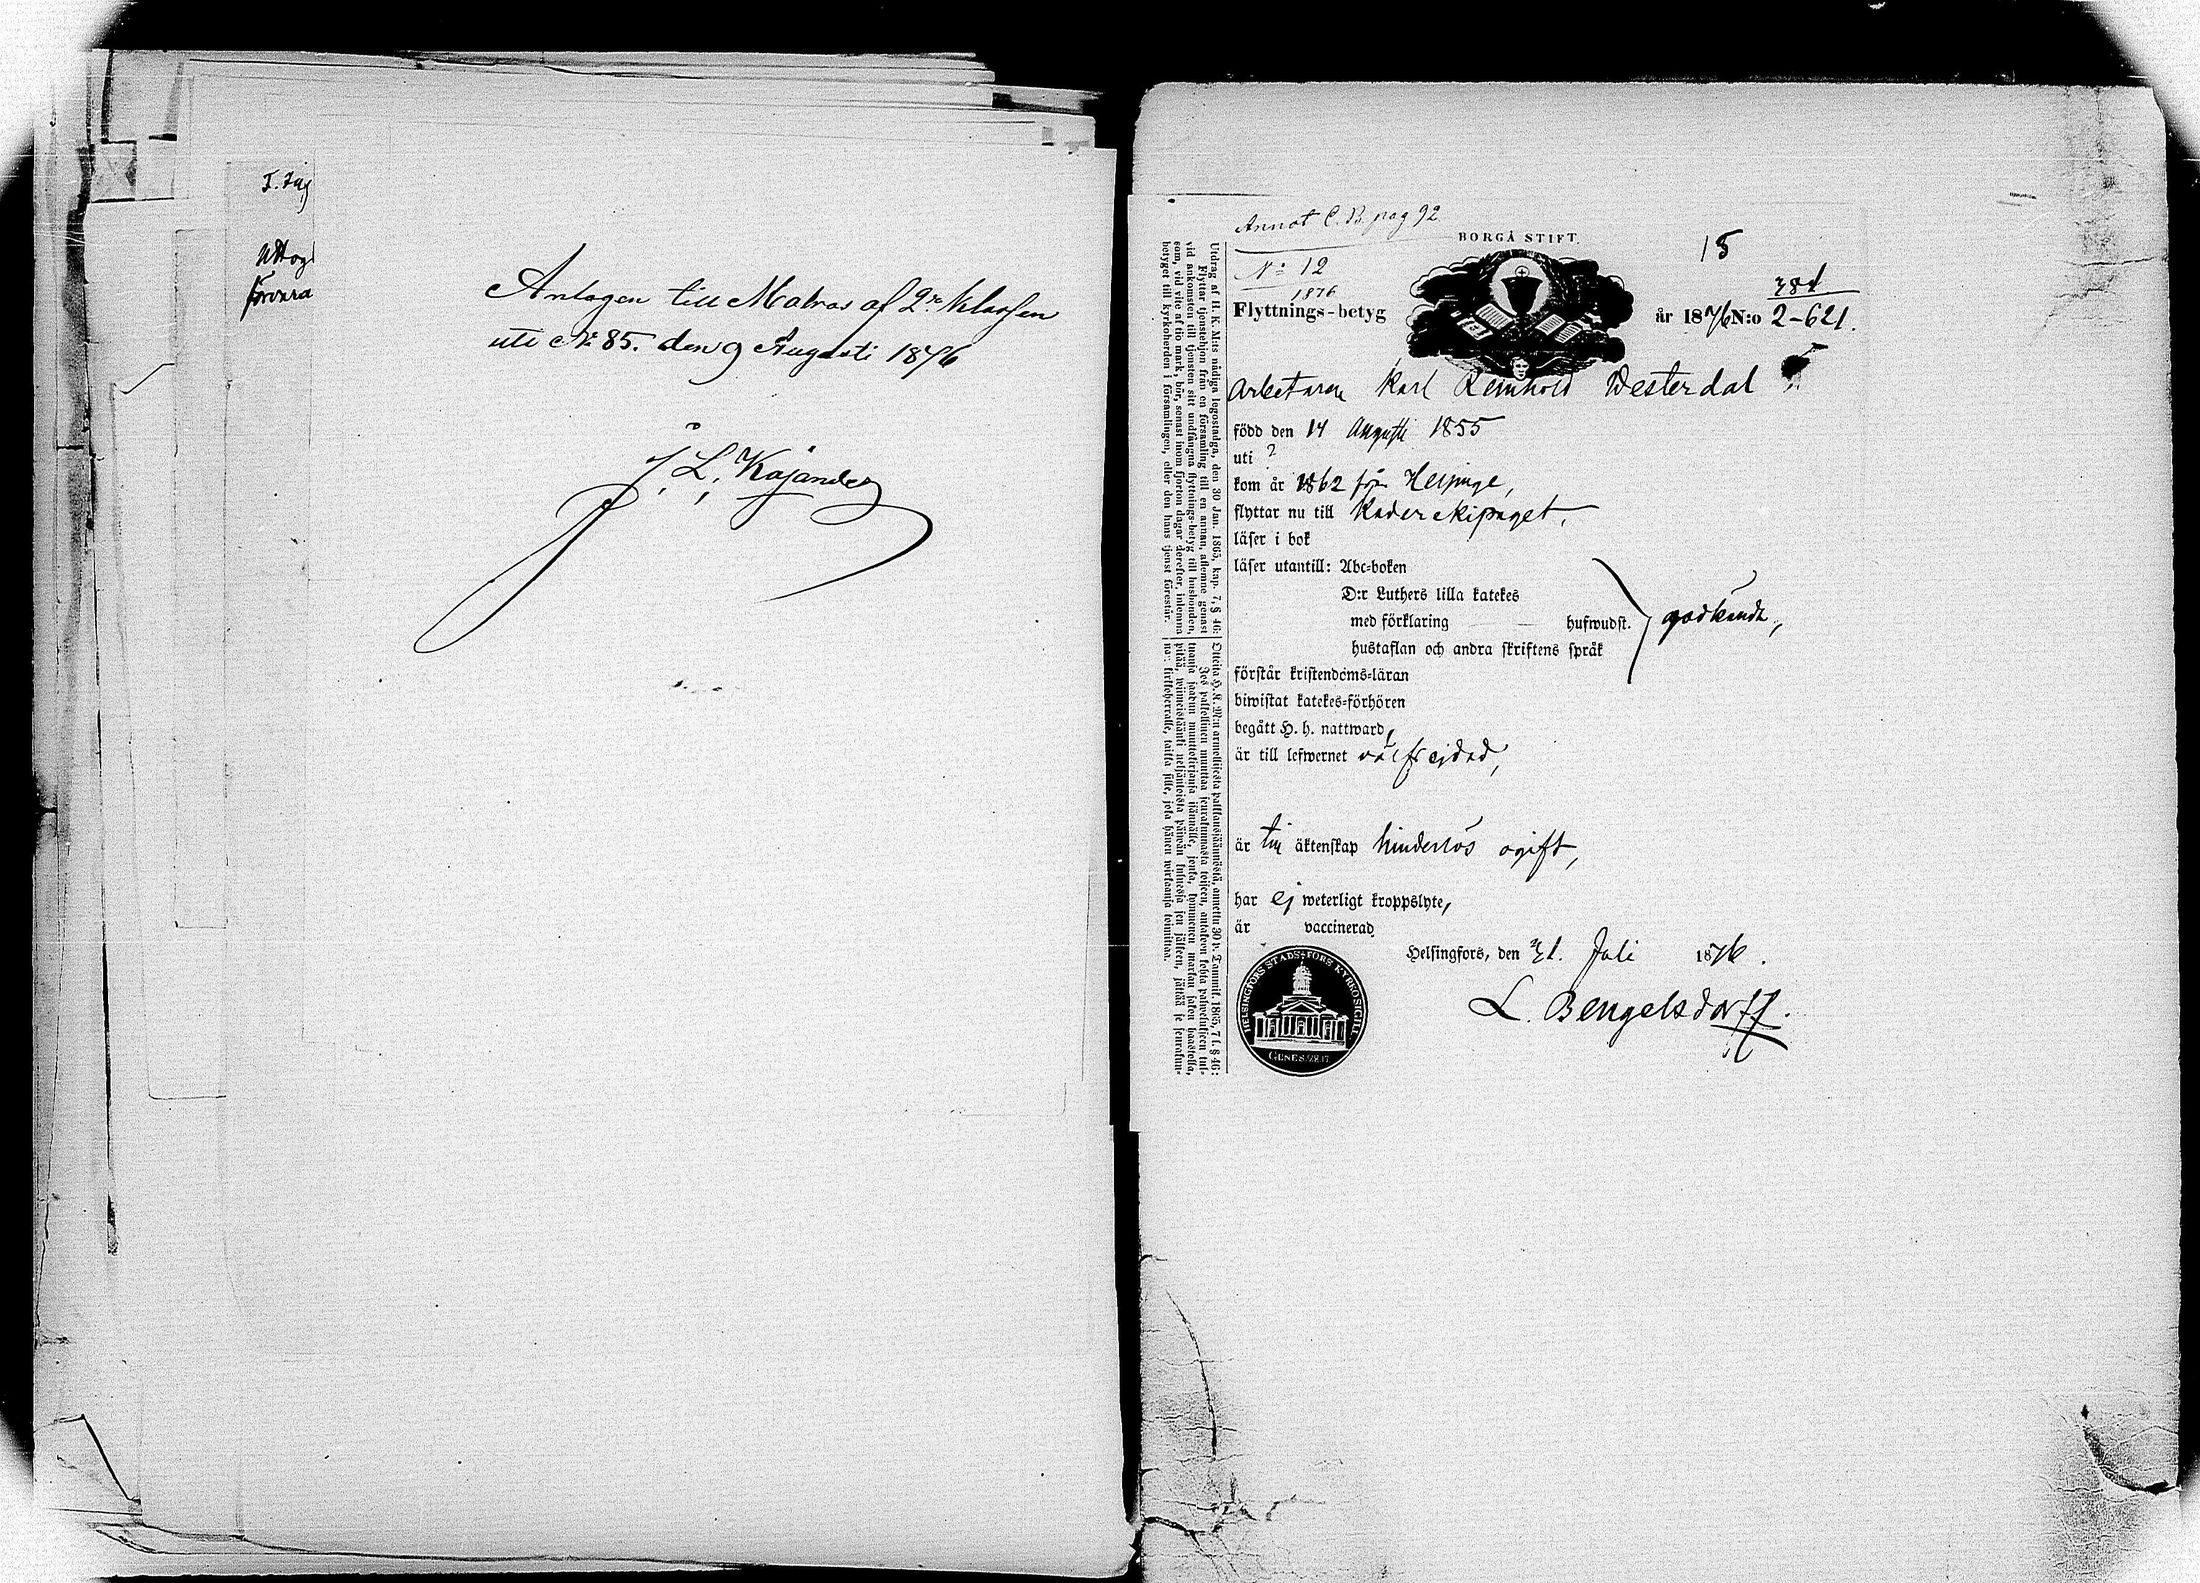 Antagen till Matros af 2:ra klassen
uti No 85. den 9 Augusti 1876
J. L. Kajander
Annot C. B. pag 92
BORGÅ STIFT.
15
No 12
1876
381
Flyttnings-betyg
år 1876 N:o 2-621.
Arbetaren Karl Reinhold Westerdal
född den 14 Augusti 1855
uti ?
kom år 1862 från
flyttar nu till Kader ekipaget,
läser i bok
läser utantill: Abc-boken
D:r Luthers lilla katekes
med förklaring — — hufwudst.
hustaflan och andra skriftens språk
godkändt,
förstår kristendoms-läran
biwistat katekes-förhören
begått H. h. nattward,
är till lefwernet välfrejdad,
är till äktenskap hinderlös ogift,
har ej weterligt kroppslyte,
är vaccinerad
Helsingfors, den 31. Juli 1876.
L. Bengelsdorff.
HELSINGFORS STADS-FÖRS. KYRKOSIGILL
GENES. 28. 17.
Utdrag af H. K. M:ts nådiga legostadga, den 30 Jan. 1865, kap. 7, § 46:
Flyttar tjenstehjon från en församling till en annan, aflemne genast
vid ankomsten till tjensten sitt undfångna flyttnings-betyg till husbonden,
som, vid vite af tio mark, bör, senast inom fjorton dagar derefter, inlemna
betyget till kyrkoherden i församlingen, eller den hans tjenst förestår.